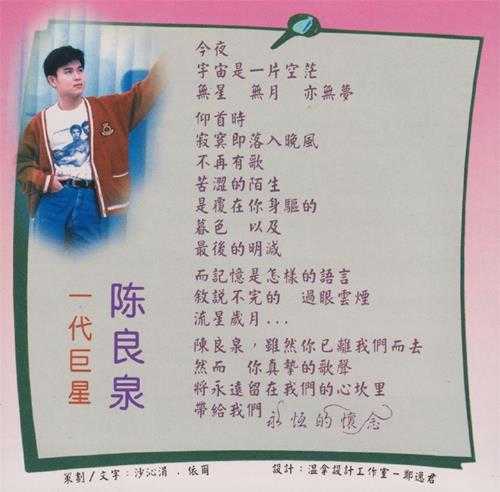 今夜
宇宙是一片空茫
無星　無月　亦無夢
仰首時
寂寞即落入晚風
不再有歌
苦澀的陌生
是覆在你身驅的
暮色　以及
最後的明滅
而記憶是怎樣的語言
敘說不完的　過眼雲煙
流星歲月...
陳良泉，雖然你已離我們而去
然而　你真摯的歌聲
將永遠留在我們的心坎里
帶給我們永恆的懷念
陈良泉
一代巨星
策劃/文字：沙沁涓．依爾
設計：温拿設計工作室－鄭過君